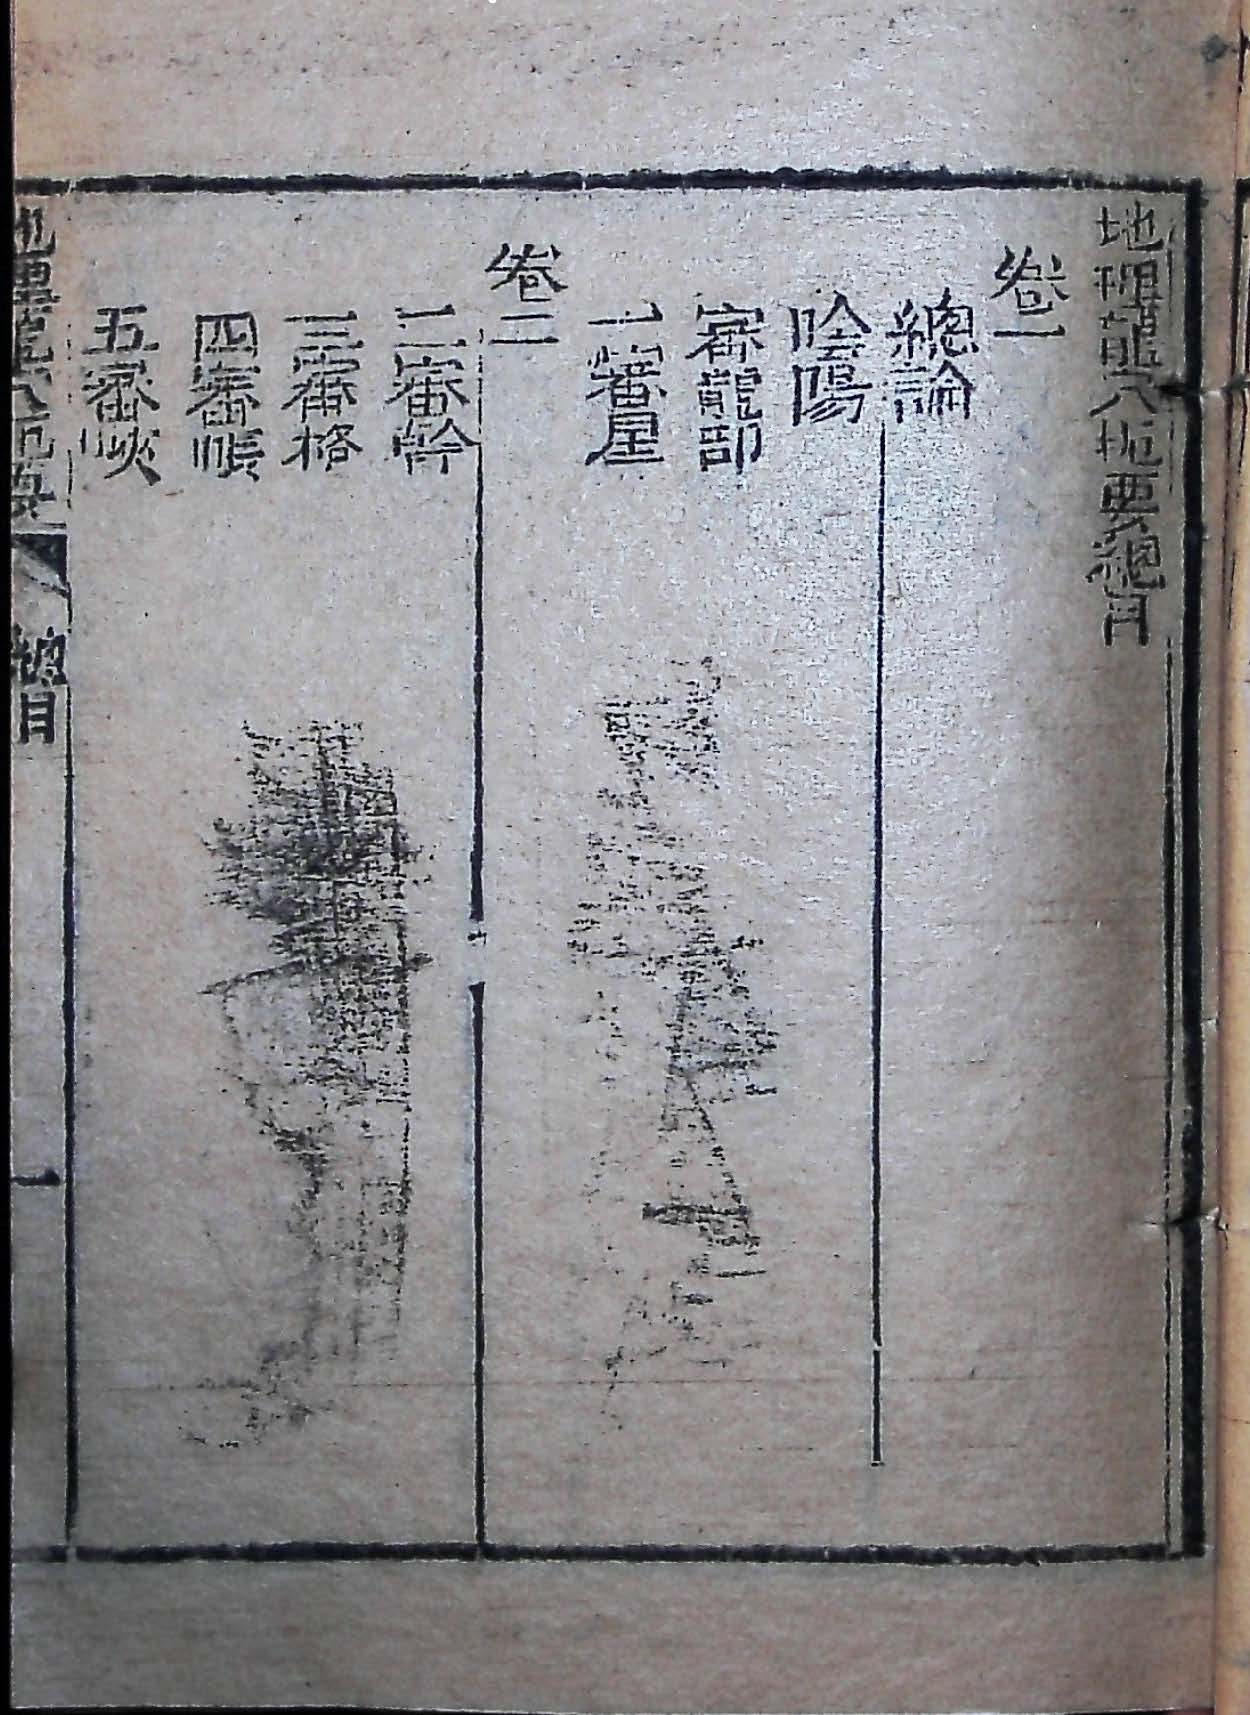 地理龍穴扼要總目
卷一
總論
陰陽
審龍部
一審星
卷二
二審幹
三審格
四審帳
五審峽
地理龍穴扼要
總目
一